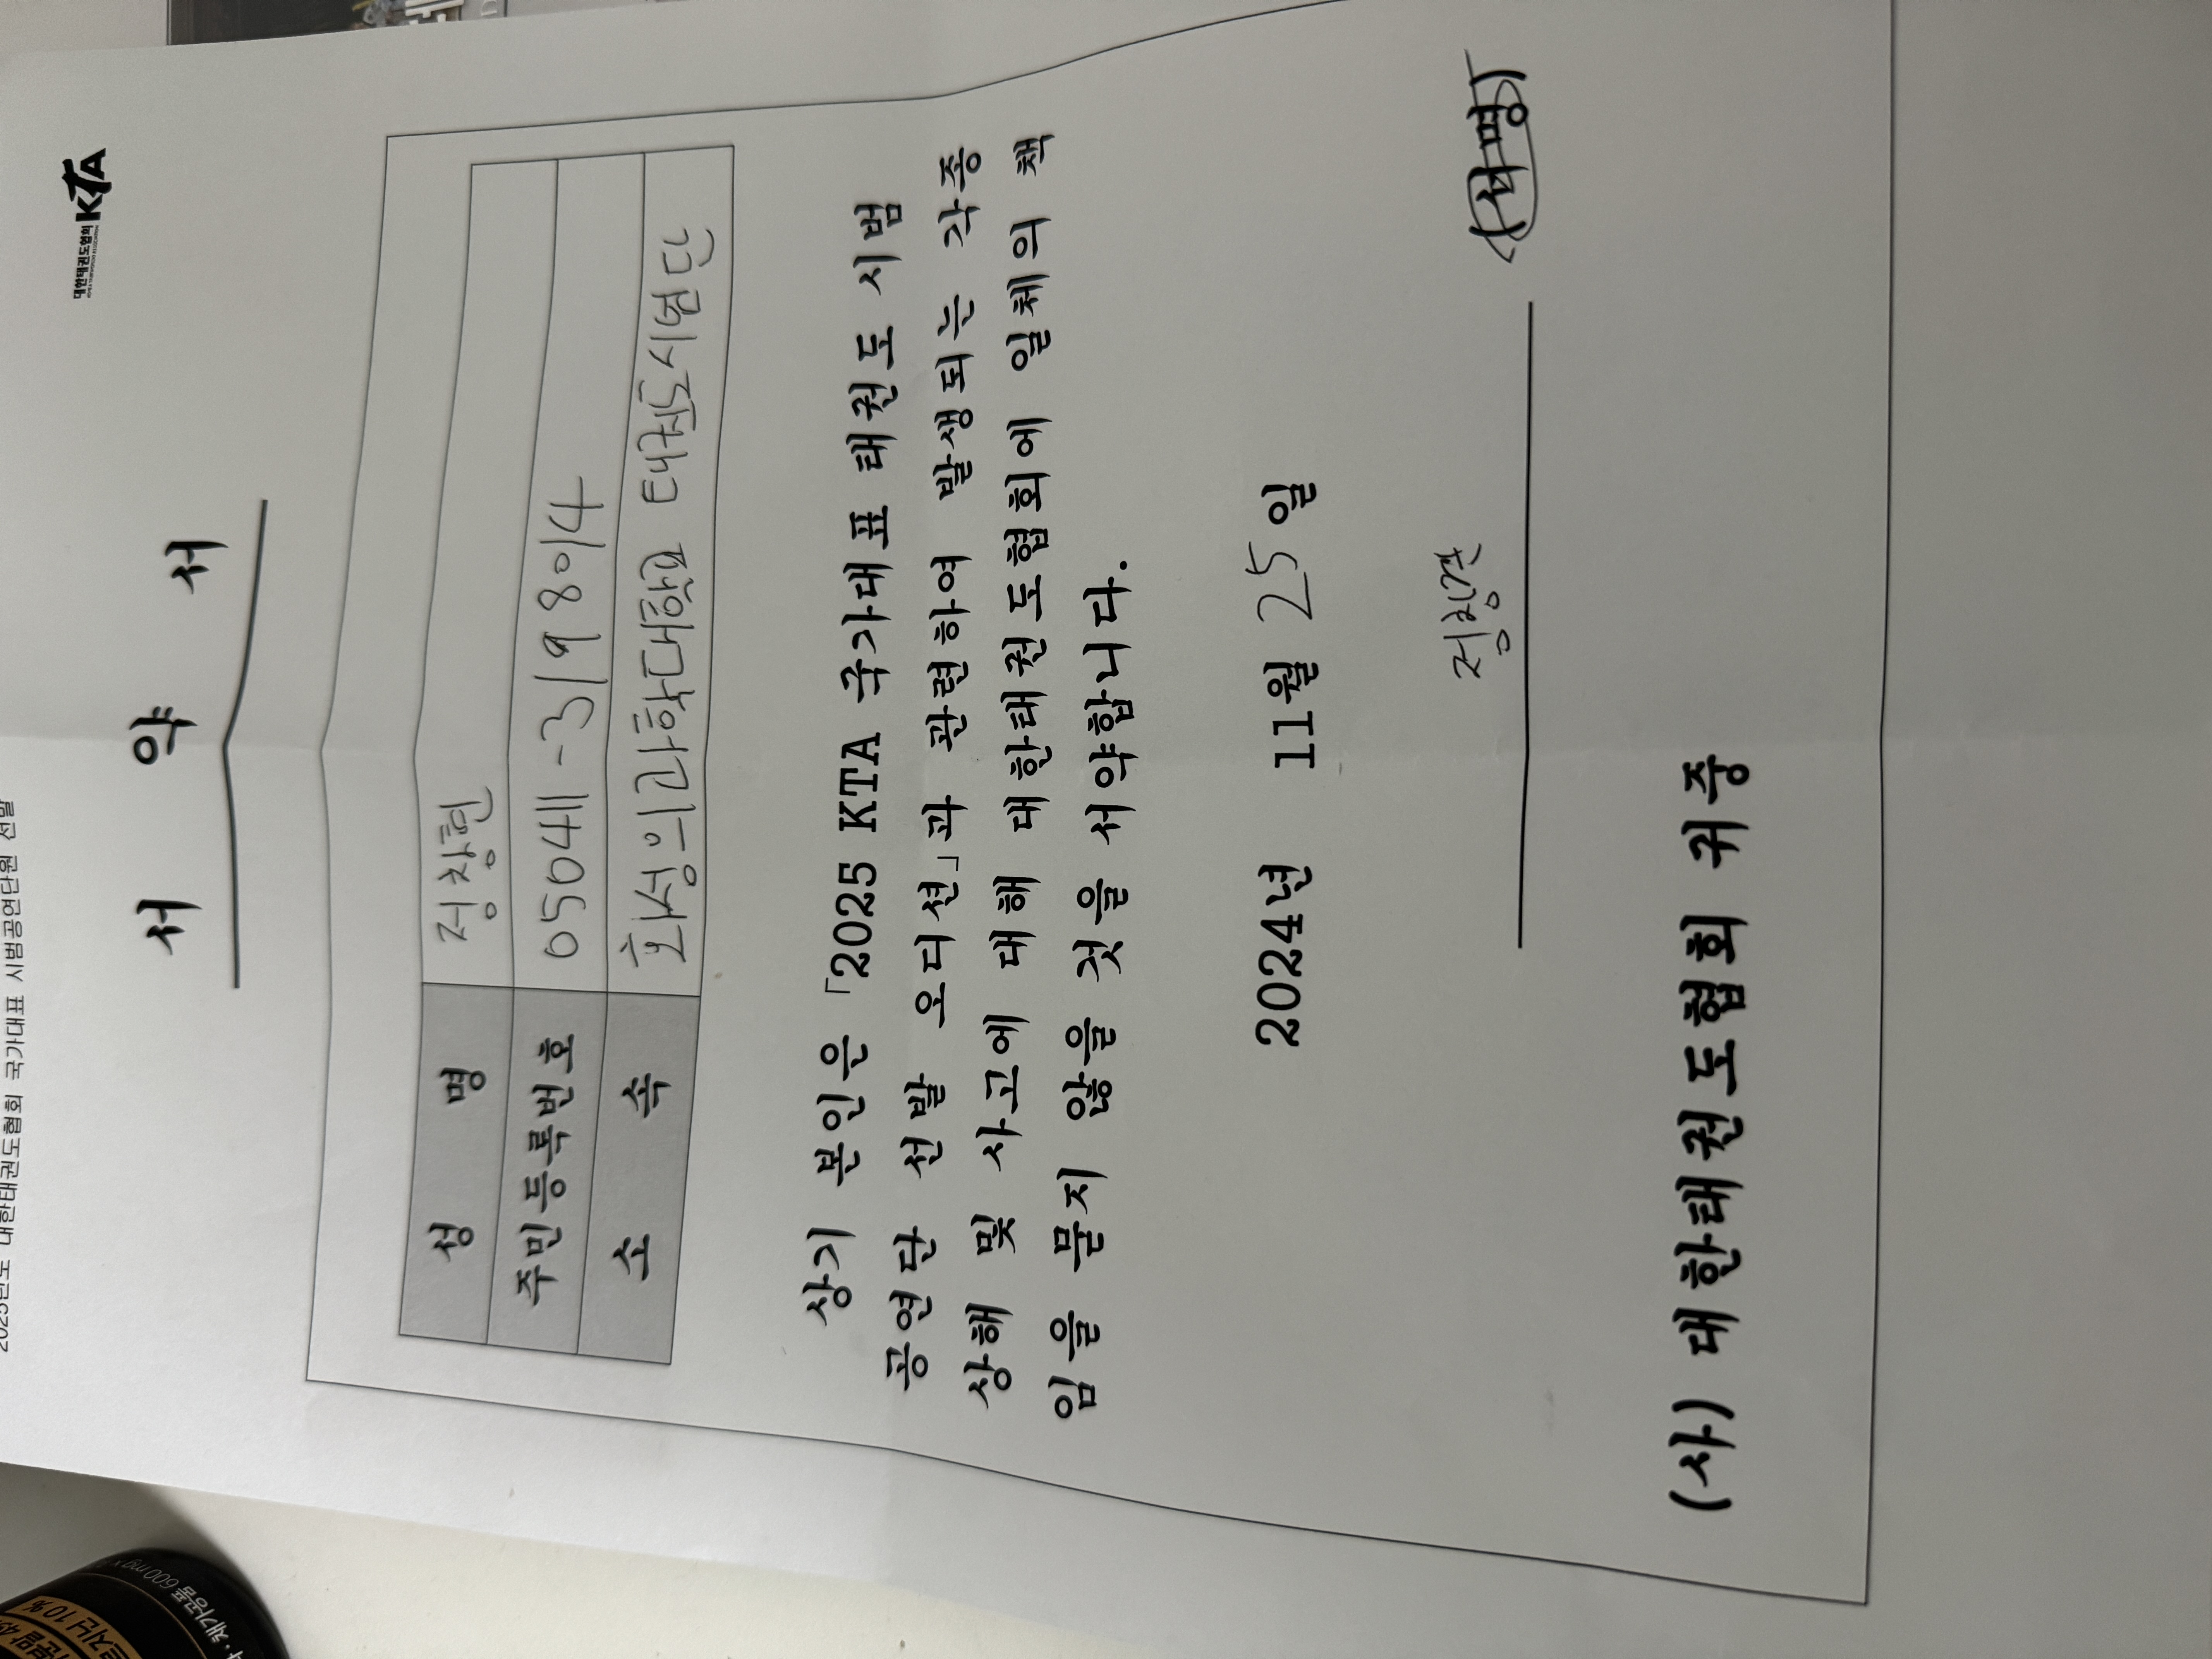 2025년도 대한태권도협회 국가대표 시범공연단원 선발
대한태권도협회 KTA
서 약 서
성 명 정창현
주민등록번호 050411-3198014
소 속 화성의과학대학교 태권도시범단
상기 본인은 「2025 KTA 국가대표 태권도 시범
공연단 선발 오디션」과 관련하여 발생되는 각종
상해 및 사고에 대해 대한태권도협회에 일체의 책
임을 묻지 않을 것을 서약합니다.
2024년 11월 25일
정창현 (서명)
(사) 대한태권도협회 귀중
600mg
10%